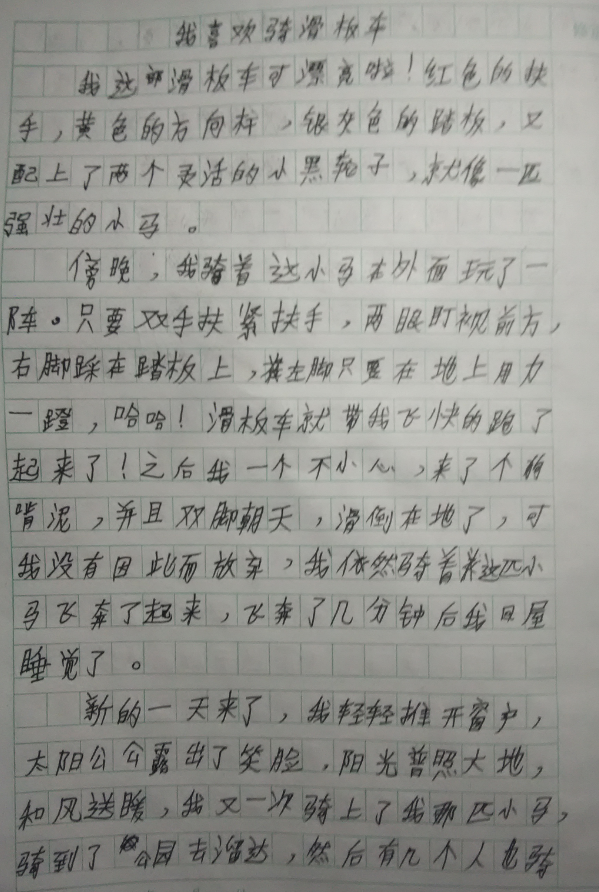 我喜欢骑滑板车
我这部滑板车可漂亮啦！红色的扶
手，黄色的方向杆，银灰色的踏板，又
配上了两个灵活的小黑轮子，就像一匹
强壮的小马。
傍晚，我骑着这小马在外面玩了一
阵。只要双手扶紧扶手，两眼盯视前方，
右脚踩在踏板上，左脚只要在地上用力
一蹬，哈哈！滑板车就带我飞快的跑了
起来了！之后我一个不小心，来了个狗
啃泥，并且双脚朝天，滑倒在地了，可
我没有因此而放弃，我依然骑着这匹小
马飞奔了起来，飞奔了几分钟后我回屋
睡觉了。
新的一天来了，我轻轻推开窗户，
太阳公公露出了笑脸，阳光普照大地，
和风送暖，我又一次骑上了我那匹小马，
骑到了公园去溜达，然后有几个人也骑